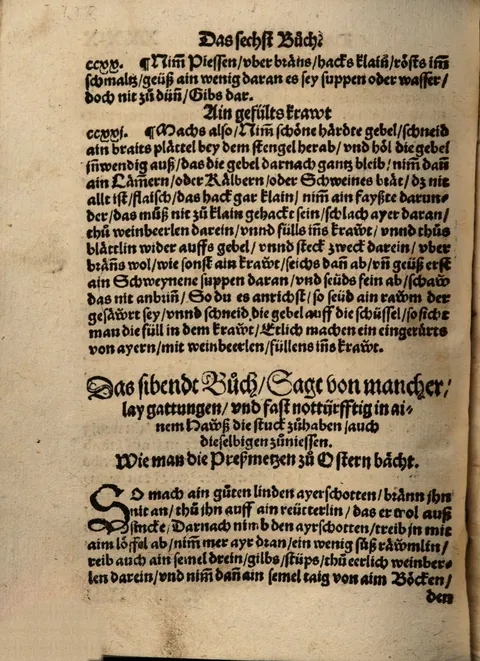 Das sechst Bůch.
ccxx. ¶Nim̃ Piessen/vber bräns/hacks klain/rösts im̃
schmaltz/geüß ain wenig daran es sey suppen oder wasser/
doch nit zů dün̄/Gibs dar.
Ain gefülts krawt
ccxxj. ¶Machs also/Nim̃ schöne härdte gebel/schneid
ain braits plättel bey dem stengel herab/vnd höl die gebel
jn̄wendig auß/das die gebel darnach gantz bleib/nim̃ dañ
ain Lämern/oder Kälbern/oder Schweines brät/dz nit
allt ist/flaisch/das hack gar klain/nim̃ ain fayßte darun⸗
der/das můß nit zů klain gehackt sein/schlach ayer daran/
thů weinbeerlen darein/vnnd fülls iñs krawt/vnnd thůs
blättlin wider auffs gebel/vnnd steck zweck darein/vber
bräñs wol/wie sonst ain krawt/seichs dañ ab/vñ geüß erst
ain Schweynene suppen daran/vnd seüds fein ab/schaw
das nit anbrün̄/So du es anrichst/so seüd ain rawm der
gesäwrt sey/vnnd schneid die gebel auff die schüssel/so sicht
man die füll in dem krawt/Etlich machen ein eingerürts
von ayern/mit weinbeerlen/füllens iñs krawt.
Das sibendt Bůch/Sagt von mancher⸗
lay gattungen/vnd fast nottürfftig in ai⸗
nem Hawß die stuck zůhaben/auch
dieselbigen zůniessen.
Wie man die Preßmetzen zů Ostern bächt.
SO mach ain gůten linden ayerschotten/bränn jhn
nit an/thů jhn auff ain reütterlin/das er wol auß
sincke/Darnach nim̃ den ayrschotten/treib jn mit
aim löffel ab/nim̃ mer ayr dran/ein wenig süß räwmlin/
treib auch ain semel drein/gilbs/stüps/thů eerlich weinber⸗
len darein/vnd nim̃ dañ ain semel taig von aim Böcken/
den